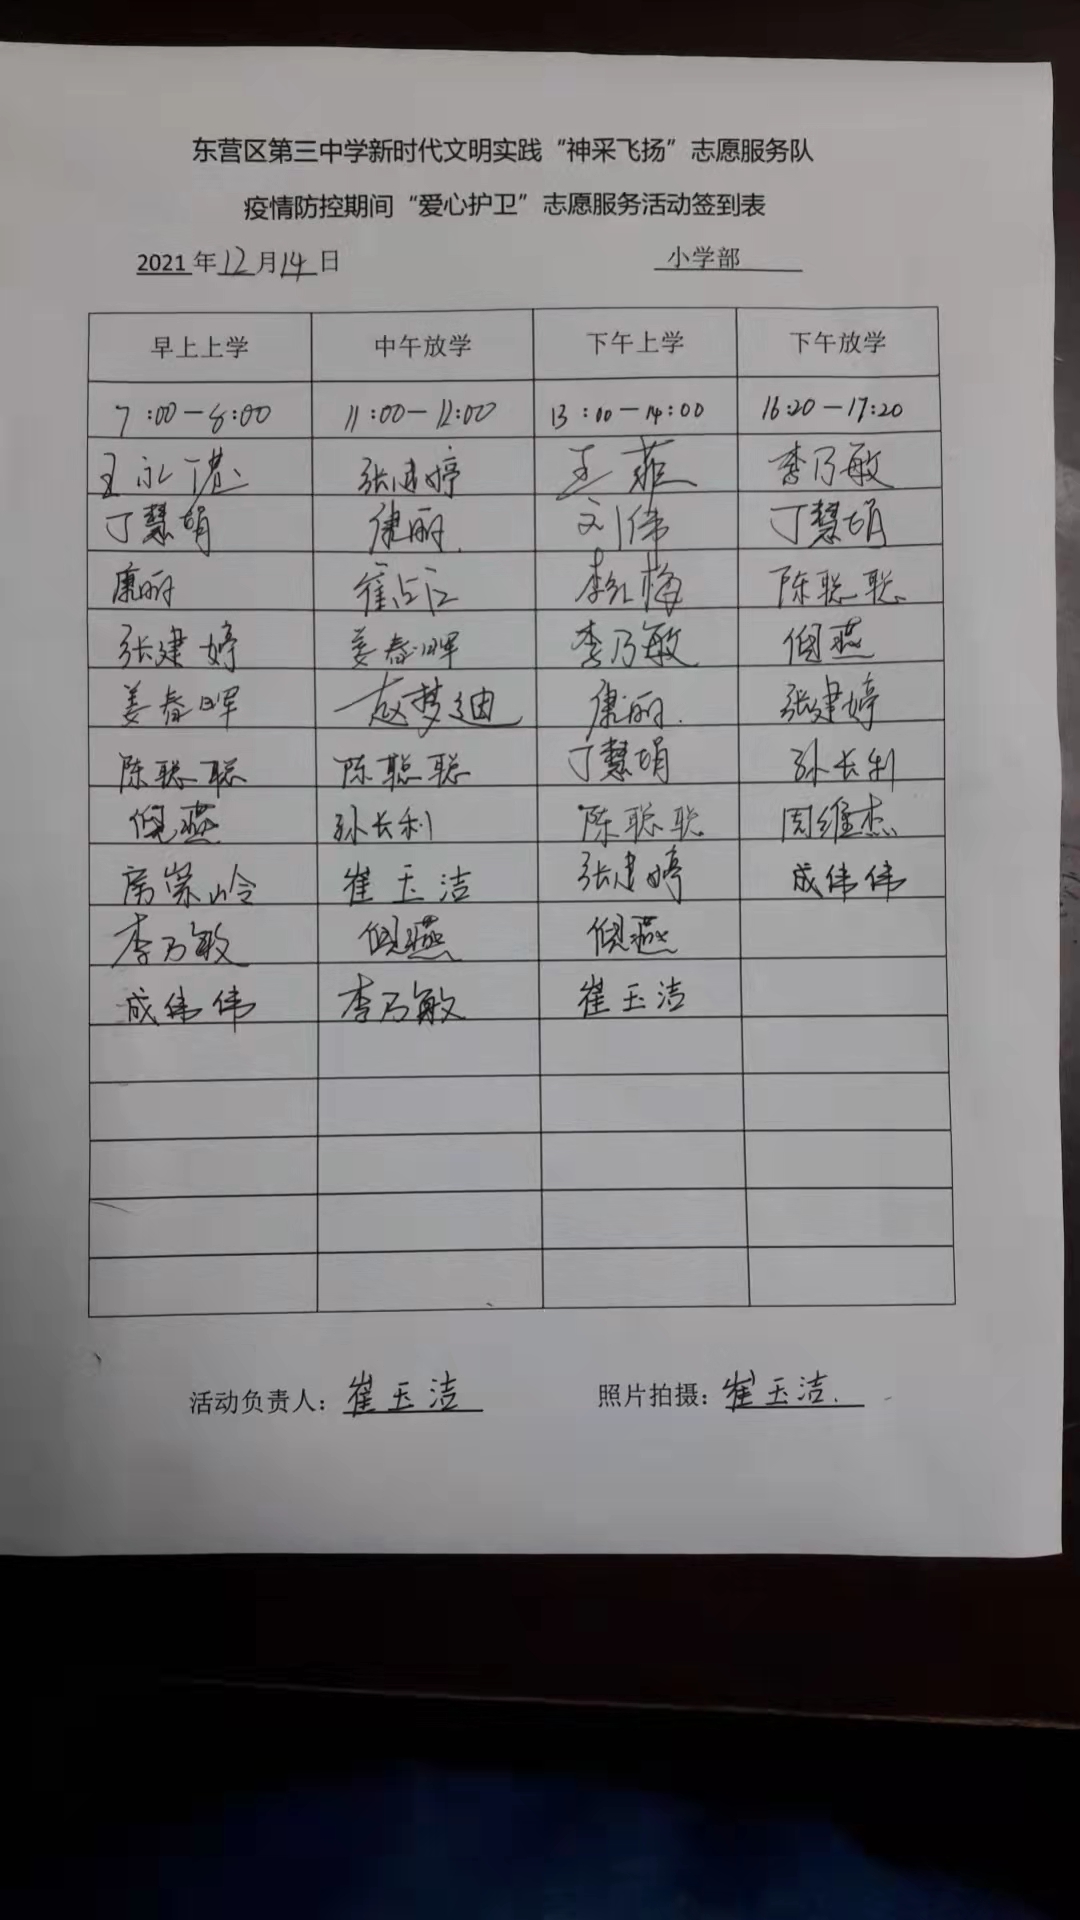 东营区第三中学新时代文明实践“神采飞扬”志愿服务队
疫情防控期间“爱心护卫”志愿服务活动签到表
2021年12月14日 小学部
早上上学 中午放学 下午上学 下午放学
7:00-8:00 11:00-12:00 13:00-14:00 16:20-17:20
张建婷 王菲 李乃敏
丁慧娟 康丽 刘伟 丁慧娟
康丽 崔占江 李红梅 陈聪聪
张建婷 姜春晖 李乃敏 倪燕
姜春晖 赵梦迪 康丽 张建婷
陈聪聪 陈聪聪 丁慧娟 孙长利
倪燕 孙长利 陈聪聪 周维杰
房崇岭 崔玉洁 张建婷 成伟伟
李乃敏 倪燕 倪燕
成伟伟 李乃敏 崔玉洁
活动负责人：崔玉洁 照片拍摄：崔玉洁